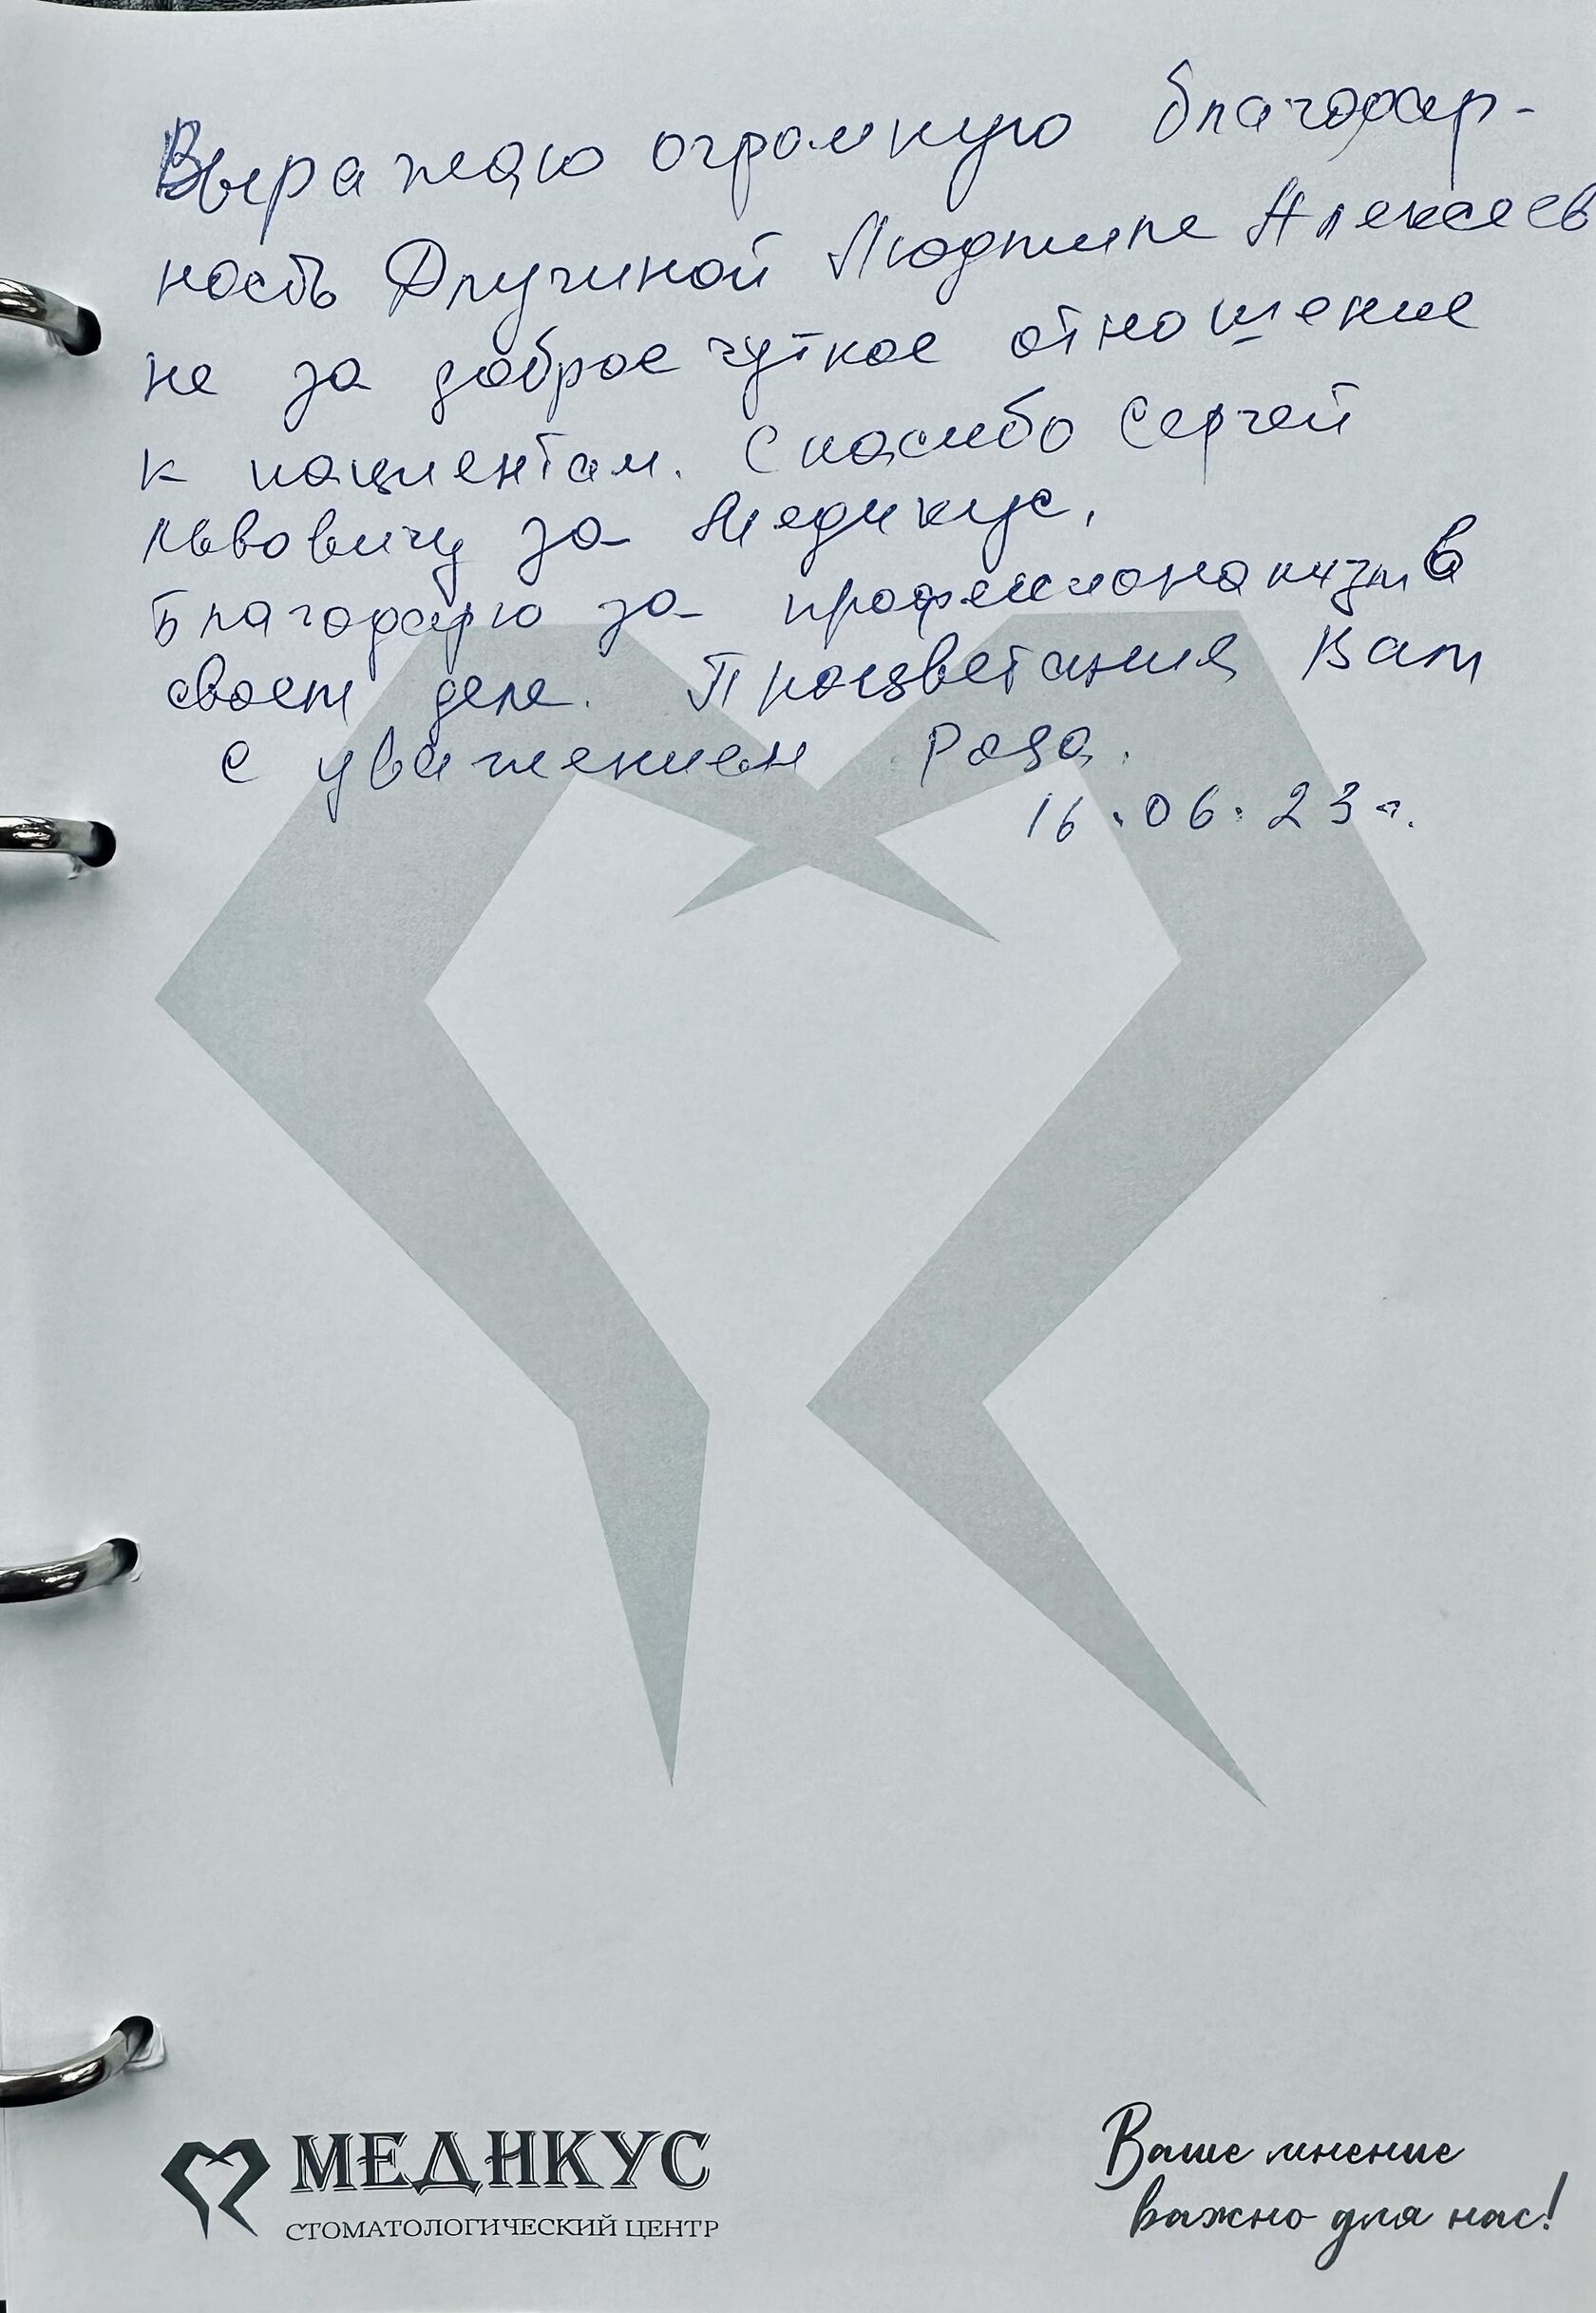 Выражаю огромную благодар-
ность Длугиной Людмиле Алексеев
не за доброе чуткое отношение
к пациентам. Спасибо Сергей
Львовичу за Медикус,
Благодарю за профессионализм в
своем деле. Процветания Вам
с уважением Роза.
16.06.23г.
МЕДИКУС
СТОМАТОЛОГИЧЕСКИЙ ЦЕНТР
Ваше мнение
важно для нас!